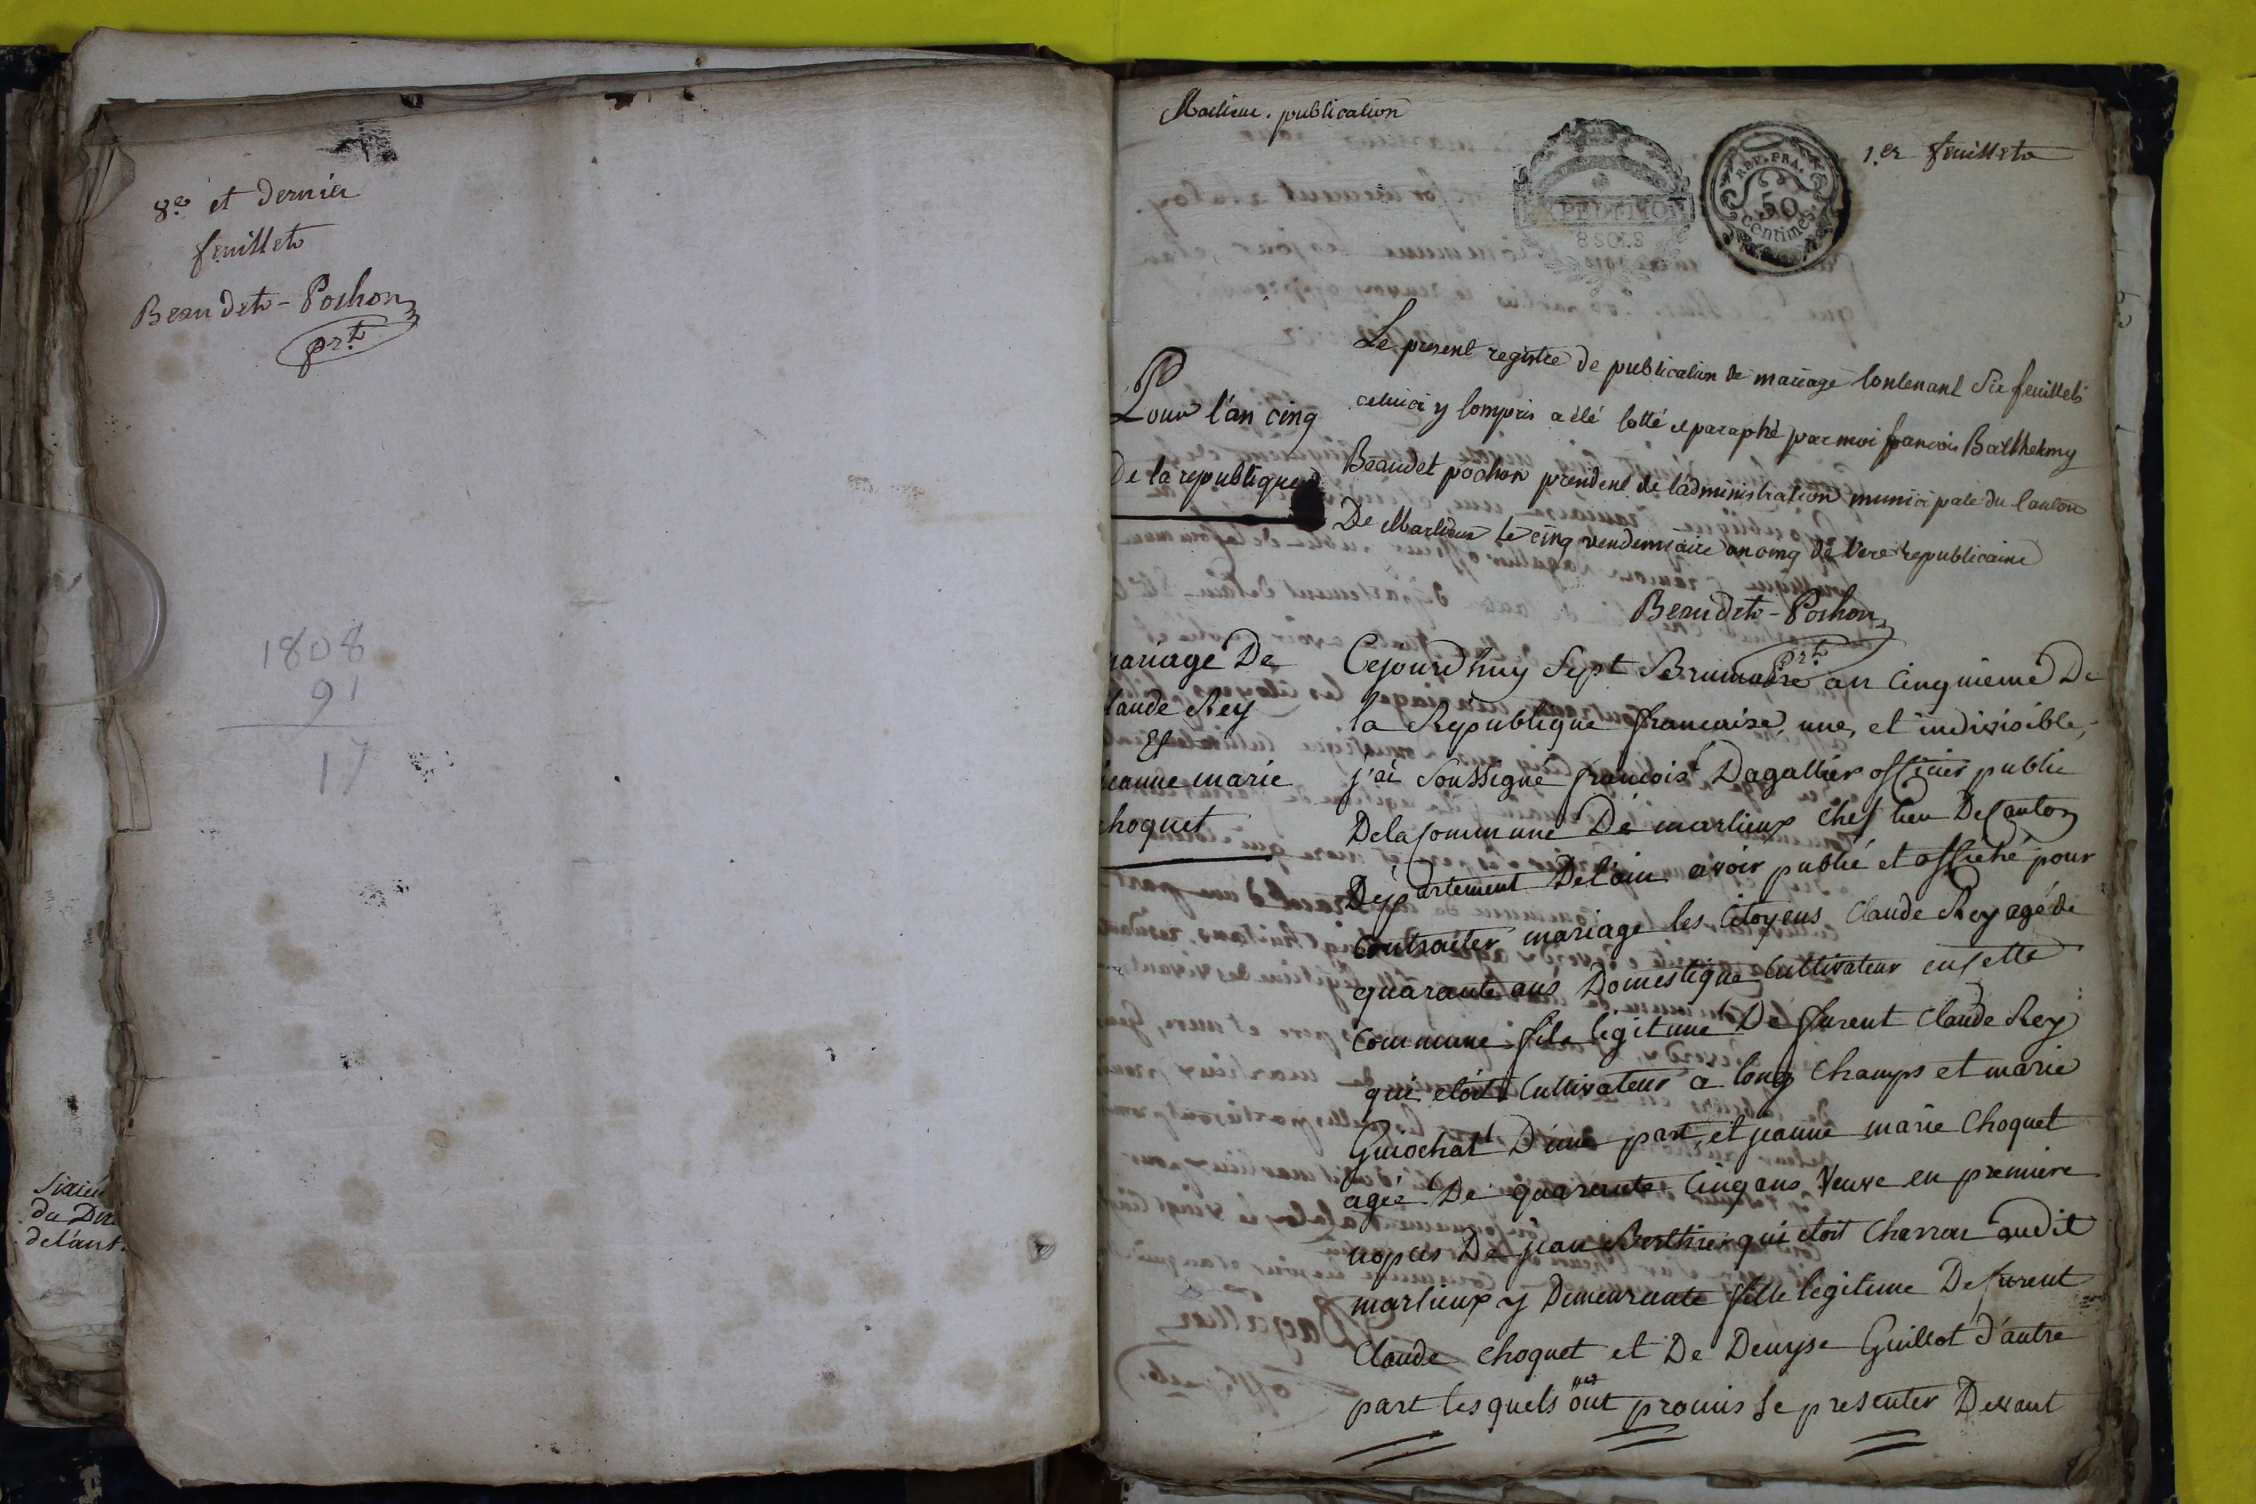 8e et dernier
feuillet
Beaudet-Pochon
prt
1808
91
17
du Dir
de l'ant
Marlieux. publication
1.er feuillet
EXPEDITION
8 SOLS
REP. FRA.
50
Centimes
Pour l'an cinq
De la republique
Le present registre de publication de mariage Contenant Six feuillets
celuici y Compris a été Cotté et paraphé par moi francois Barthelemy
Beaudet pochon president de l'administration municipale du Canton
De Marlieux le cinq vendemiaire an cinq de l'ere republicaine
Beaudet-Pochon
prt
ariage De
laude Rey
Et
eanne marie
hoquet
Cejourd'huy Sept Brumaire an Cinquieme De
la Republique francaise, une, et indivisible,
j'ai Soussigné francois Dagallier officier public
De la Commune De marlieux chef lieu De Canton
Departement De l'ain avoir publié et affiché pour
contracter mariage les Citoyens Claude Rey agé de
quarante ans Domestique Cultivateur en Cette
commune fils legitime De furent Claude Rey
qui etoit Cultivateur a long Champs et marie
Guiochat D'une part, et jeanne marie Choquet
agée De quarante Cinq ans Veuve en premiere
nopces De jean Berthier qui etoit Charron audit
marlieux y Demeurante fille legitime De furent
Claude Choquet et De Denyse Guillot d'autre
part lesquels ont promis Se presenter Devant